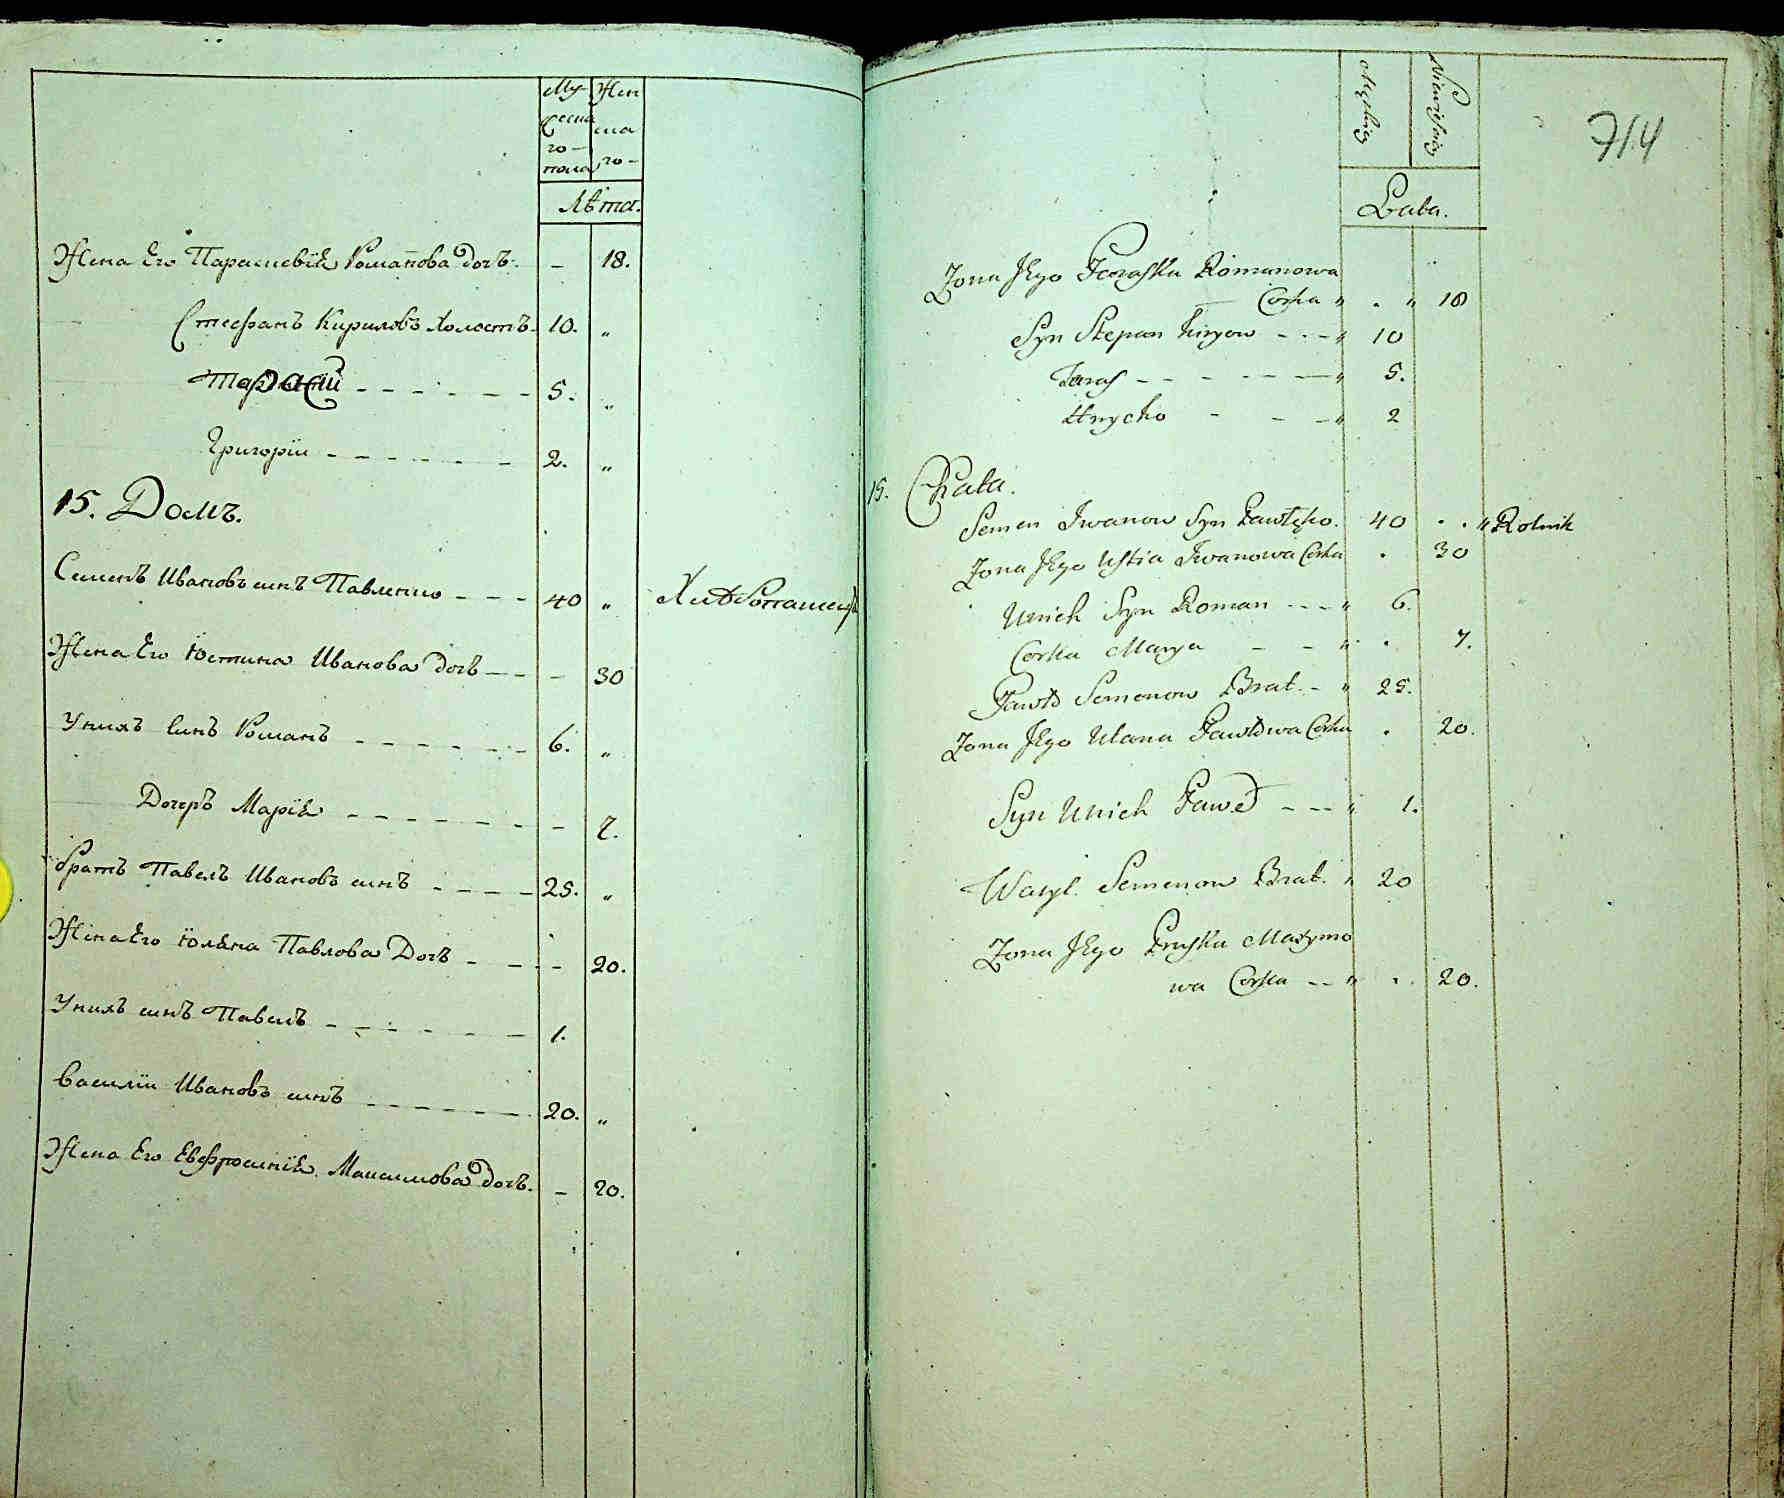 Му- Жен
жеска ска
го- го-
пола
Лѣта.
Жена Его Параскевія Романова дочь. - 18.
Стефанъ Кириловъ Холостъ 10. "
Тарасій - - - - - - 5. "
Григорій - - - - - - 2. "
15. Домъ.
Семенъ Ивановъ синъ Павленко - - - 40 "
Жена Его Юстина Иванова дочь - - - 30
Унихъ синъ Романъ - - - - - - 6. "
Дочеръ Марія - - - - - - - 7.
братъ Павелъ Ивановъ синъ - - - - 25. "
Жена Его Юліяна Павлова Дочь - - - 20.
Унихъ синъ Павелъ - - - - - - 1.
Василій Ивановъ синъ - - - - - - 20. "
Жена Его Евфросинія Максимова дочь. - 20.
714
Męzkie Niewiescie
Lata.
Zona Jego Paraska Romanowa
Corka " . " 18
Syn Stepan Kiryow - - - " 10
Taras - - - - - - " 5.
Hrycko - - - " 2
15. Chata.
Semen Iwanow Syn Pawlęko. 40 . . " Rolnik
Zona Jego Ustia Iwanowa Corka . 30
Unich Syn Roman - - - " 6.
Corka Marya - - " . 7.
Pawło Semenow Brat. - " 25.
Zona Jego Ulana Pawłowa Corka . 20.
Syn Unich Paweł - - - " 1.
Wasyl. Semenow Brat. " 20
Zona Jego Pruska Maxymo
wa Corka - - " . . 20.